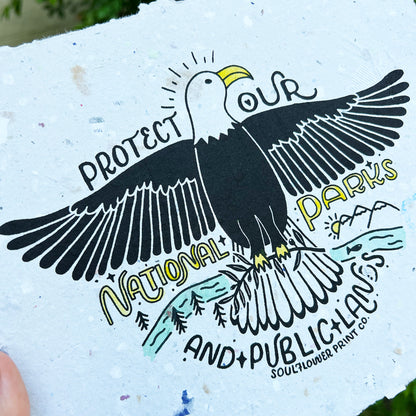 PROTECT OUR
NATIONAL PARKS
AND PUBLIC LANDS
SOULFLOWER PRINT CO.